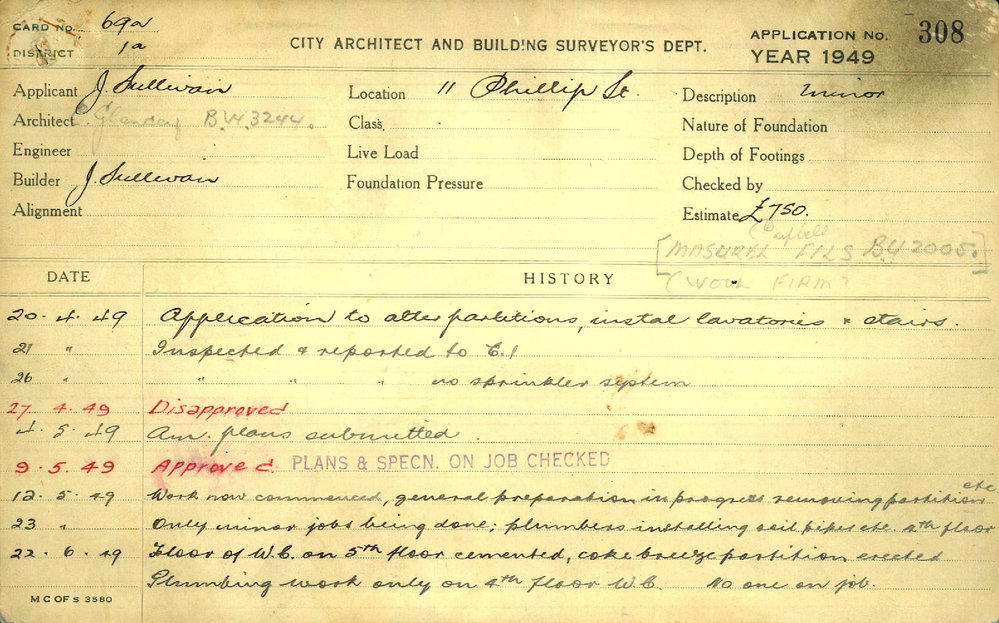 CARD No. 69a
DISTRICT 1a
CITY ARCHITECT AND BUILDING SURVEYOR'S DEPT.
APPLICATION No. 308
YEAR 1949
Applicant J. Sullivan
Location 11 Phillip St.
Description minor
Architect B.W.3244.
Class
Nature of Foundation
Engineer
Live Load
Depth of Footings
Builder J. Sullivan
Foundation Pressure
Checked by
Alignment
Estimate £750.
[MASUREL FILS B.U 2005.]
(WOOL FIRM)
DATE
HISTORY
20. 4. 49 Application to alter partitions, instal lavatories & stairs.
21 " Inspected & reported to C.I
26 " " " " no sprinkler system
27. 4. 49 Disapproved
4. 5. 49 Am. plans submitted.
9. 5. 49 Approved. PLANS & SPECN. ON JOB CHECKED
12. 5. 49 Work now commenced, general preparation in progress removing partition etc
23 " Only minor jobs being done; plumbers installing soil pipes etc. 4th floor
22. 6. 49 Floor of W.C. on 5th floor cemented, coke breeze partition erected
Plumbing work only on 4th floor W.C. No one on job.
M C OF S 3580